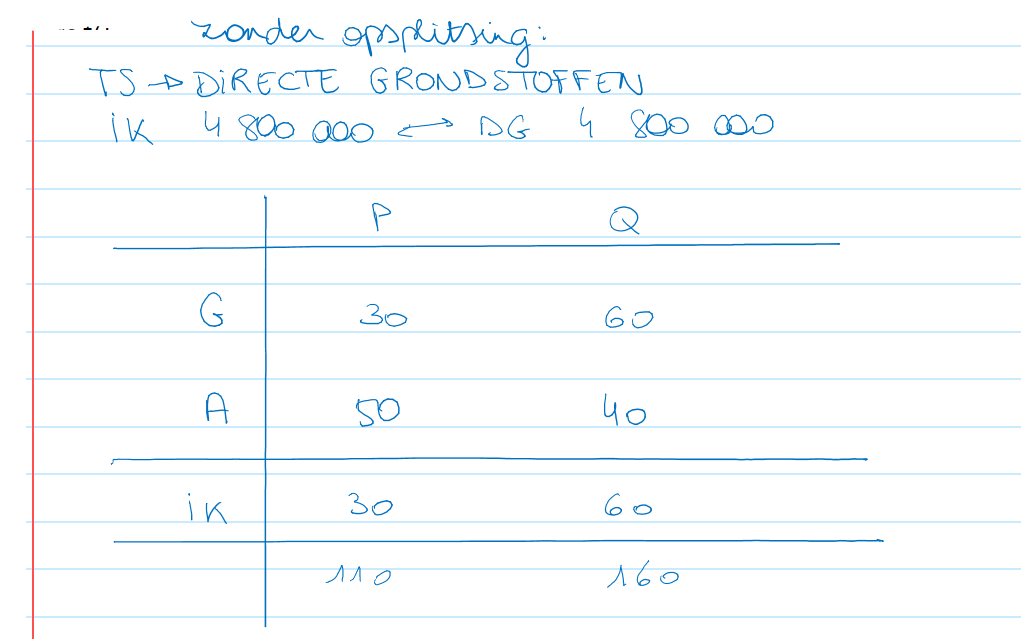 zonder opsplitsing:
TS → DIRECTE GRONDSTOFFEN
iK 4 800 000 ↔ DG 4 800 000
P Q
G 30 60
A 50 40
iK 30 60
110 160